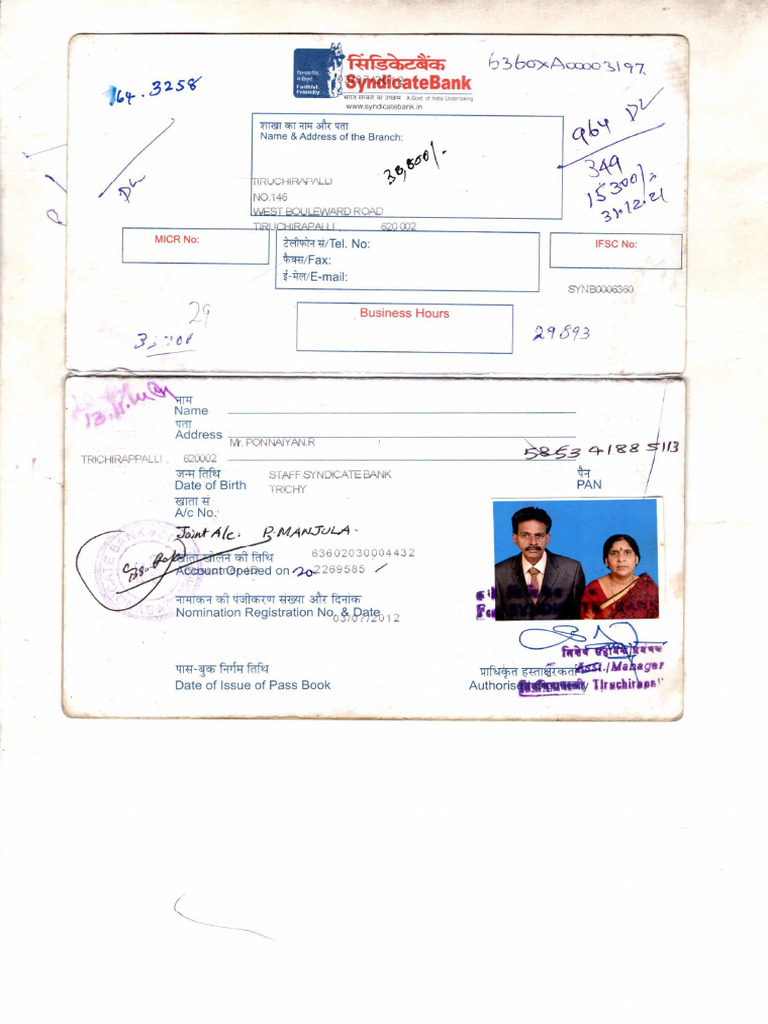 सिंडिकेटबैंक
SyndicateBank
विश्वसनीय, मैत्रीपूर्ण
Faithful, Friendly
भारत सरकार का उपक्रम A Govt. of India Undertaking
www.syndicatebank.in
6360XA00003197
164.3258
964
349
15300/-
31.12.21
शाखा का नाम और पता
Name & Address of the Branch:
30,800/-
TIRUCHIRAPALLI
NO.146
WEST BOULEWARD ROAD
TIRUCHIRAPALLI , 620 002
MICR No:
टेलीफोन सं/Tel. No:
फैक्स/Fax:
ई-मेल/E-mail:
IFSC No:
SYNB0006360
Business Hours
29
29893
नाम
Name
पता
Address
Mr. PONNAIYAN.R
TRICHIRAPPALLI , 620002
5853 4188 5113
जन्म तिथि
Date of Birth
STAFF SYNDICATE BANK
TRICHY
पैन
PAN
खाता सं
A/c No.
Joint A/c. P. MANJULA.
खाता खोलने की तिथि
63602030004432
Account Opened on
2269585
नामाकन की पंजीकरण संख्या और दिनांक
Nomination Registration No. & Date
03/07/2012
पास-बुक निर्गम तिथि
Date of Issue of Pass Book
प्राधिकृत हस्ताक्षरकर्ता
Asst./Manager
Tiruchirapalli